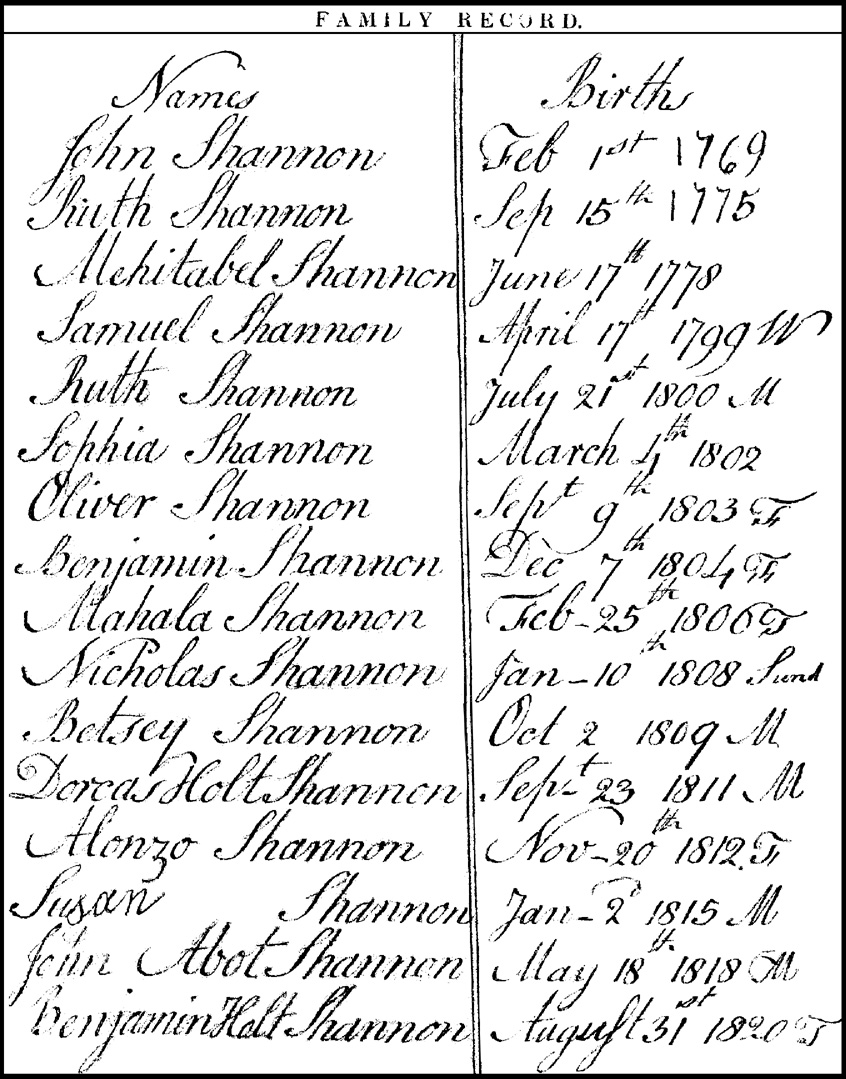 FAMILY RECORD.
Names Births
John Shannon Feb 1st 1769
Ruth Shannon Sep 15th 1775
Mehitabel Shannon June 17th 1778
Samuel Shannon April 17th 1799 W
Ruth Shannon July 21st 1800 M
Sophia Shannon March 4th 1802
Oliver Shannon Sept 9th 1803 F
Benjamin Shannon Dec 7th 1804 F
Mahala Shannon Feb - 25th 1806 T
Nicholas Shannon Jan - 10th 1808 Sund
Betsey Shannon Oct 2 1809 M
Dorcas Holt Shannon Sept 23 1811 M
Alonzo Shannon Nov - 20th 1812. F
Susan Shannon Jan - 2d 1815 M
John Abot Shannon May 18th 1818 M
Benjamin Holt Shannon August 31st 1820 T